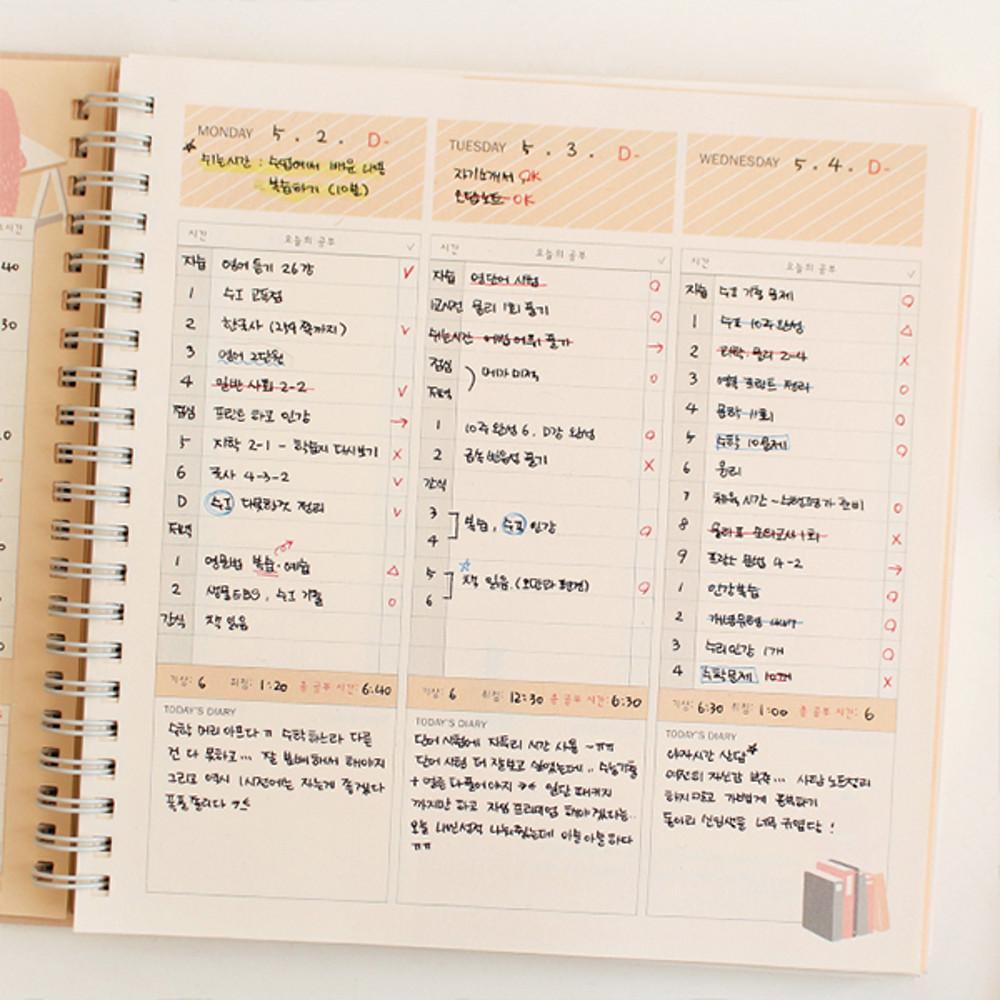 시간
40
30
MONDAY 5 . 2 . D-
쉬는시간 : 수업에서 배운 내용
복습하기 (10분)
시간 오늘의 공부 ✓
자습 영어 듣기 26강 V
1 수Ⅰ 고득점
2 한국사 (219쪽까지) V
3 영어 2단원
4 일반 사회 2-2 V
점심 프린트 하고 인강 →
5 지학 2-1 - 학습지 다시보기 X
6 국사 4-3-2 V
D 수Ⅰ 다못한것 정리 V
저녁
1 영문법 복습·예습 △
2 생물 EBS, 수Ⅰ 기출 O
간식 책 읽음
기상: 6 취침: 1:20 총 공부 시간: 6:40
TODAY'S DIARY
수학 머리 아프다 ㅠ 수학 하느라 다른
건 다 못하고... 잘 분배해서 해야지
그리고 역시 1시전에는 자는게 좋겠다
TUESDAY 5 . 3 . D-
자기소개서 OK
오답노트 OK
시간 오늘의 공부 ✓
자습 영단어 시험 O
1교시전 물리 1회 풀기 O
쉬는시간 어휘 풀기 →
점심
저녁
메가 미적 O
1 10주 완성 6, D강 완성 O
2 풀기 X
간식
3
4
복습, 수Ⅰ 인강 O
5
6
책 읽음. (오만과 편견) O
기상: 6 취침: 12:30 총 공부 시간: 6:30
TODAY'S DIARY
단어 시험에 지독리 시간 사용 ~ㅠㅠ
단어 시험 더 잘보고 싶었는데.. 수능기출
+ 영음 다풀어야지 일단 패키지
까지만 하고 자이 프리미엄 해야겠다는..
오늘 내신성적 나눠줬는데 아슬아슬하다
ㅠㅠ
WEDNESDAY 5 . 4 . D-
시간 오늘의 공부 ✓
자습 수Ⅰ 기출 문제 O
1 수Ⅰ 10주 완성 △
2 과학, 물리 2-4 X
3 프린트 정리 O
4 문학 11회 O
5 수학 10문제 O
6 윤리
7 체육 시간 ~ 수행평가 준비 O
8 모의고사 1회 X
9 프린트 문법 4-2 →
1 인강복습 O
2 개념유형 O
3 수리인강 1개 O
4 수학문제 10개 X
기상: 6:30 취침: 1:00 총 공부 시간: 6
TODAY'S DIARY
야자시간 상담
여전히 자신감 부족... 사탐 노트정리
하지말고 가볍게 공부하기
동아리 신입생들 너무 귀엽당 !